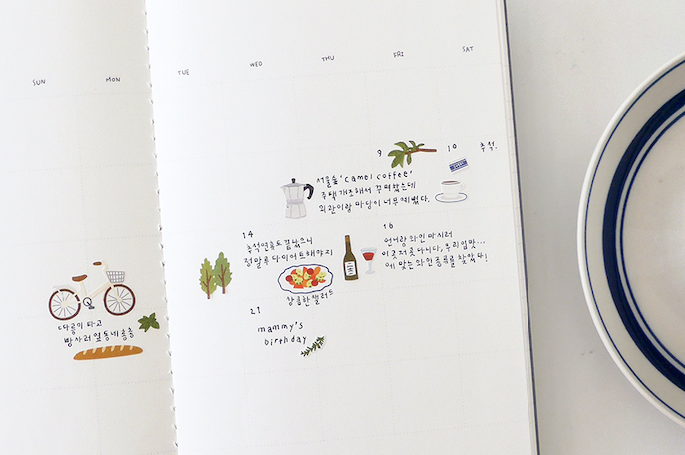 SUN MON TUE WED THU FRI SAT
9
10 추석.
서울숲 'camel coffee'
주택 개조해서 꾸며놨는데
외관이랑 마당이 너무 예뻤다.
14
추석연휴도 끝났으니
정말루 다이어트해야지
상콤한 샐러드
16
언니랑 와인 마시러
이곳저곳 다니다, 우리입맛...
에 맞는 와인 종류를 찾았다!
따릉이 타고
빵사러 옆동네 총총
21
mammy's
birthday